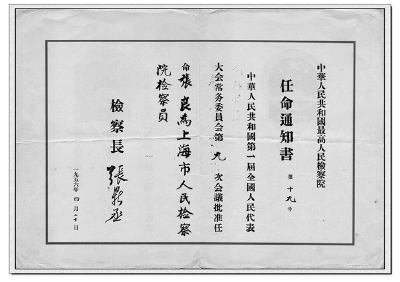 中華人民共和國最高人民檢察院
任命通知書
第十九号
中華人民共和國第一屆全國人民代表
大会常务委員会第九次会議批准任
命張良為上海市人民檢察
院檢察員
檢察長
張鼎丞
一九五六年四月二十日